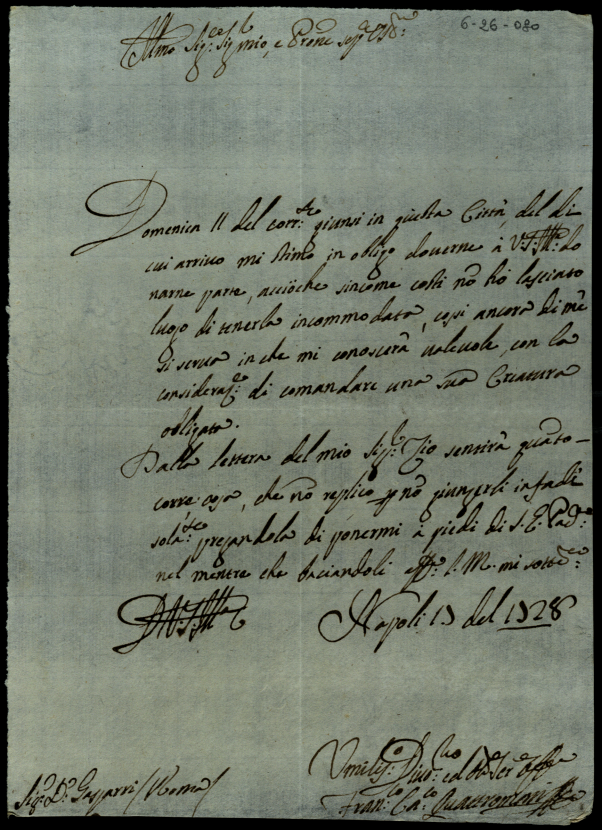 6-26-080
Illmo Sig.re Sig.r mio, e Prone
Domenica 11 del corr.te giunsi in questa Città, del di
cui arrivo mi stimo in obligo doverne à V.S.Ill.ma do
narne parte, acciòche sincome costì nõ hò lasciato
luogo di tenerla incommodata, così ancora di mè
si serva in che mi conoscerà valevole, con la
consideraz.e di comandare una sua Creatura
obligata.
Dalla lettera del mio Sig.r Zio sentirà quãto
corre cosa, che nõ replico p nõ giungerli infadi
sola.te pregandola di pormi à piedi di S. E. Pad.e
nel mentre che baciandoli l. M. mi
D.V.S.Ill.ma
Napoli 13 del 1728
Umilis.o Div.mo ed Ser.e
Fran.co Quattromani
Sig.r D. Gasparri (Roma)